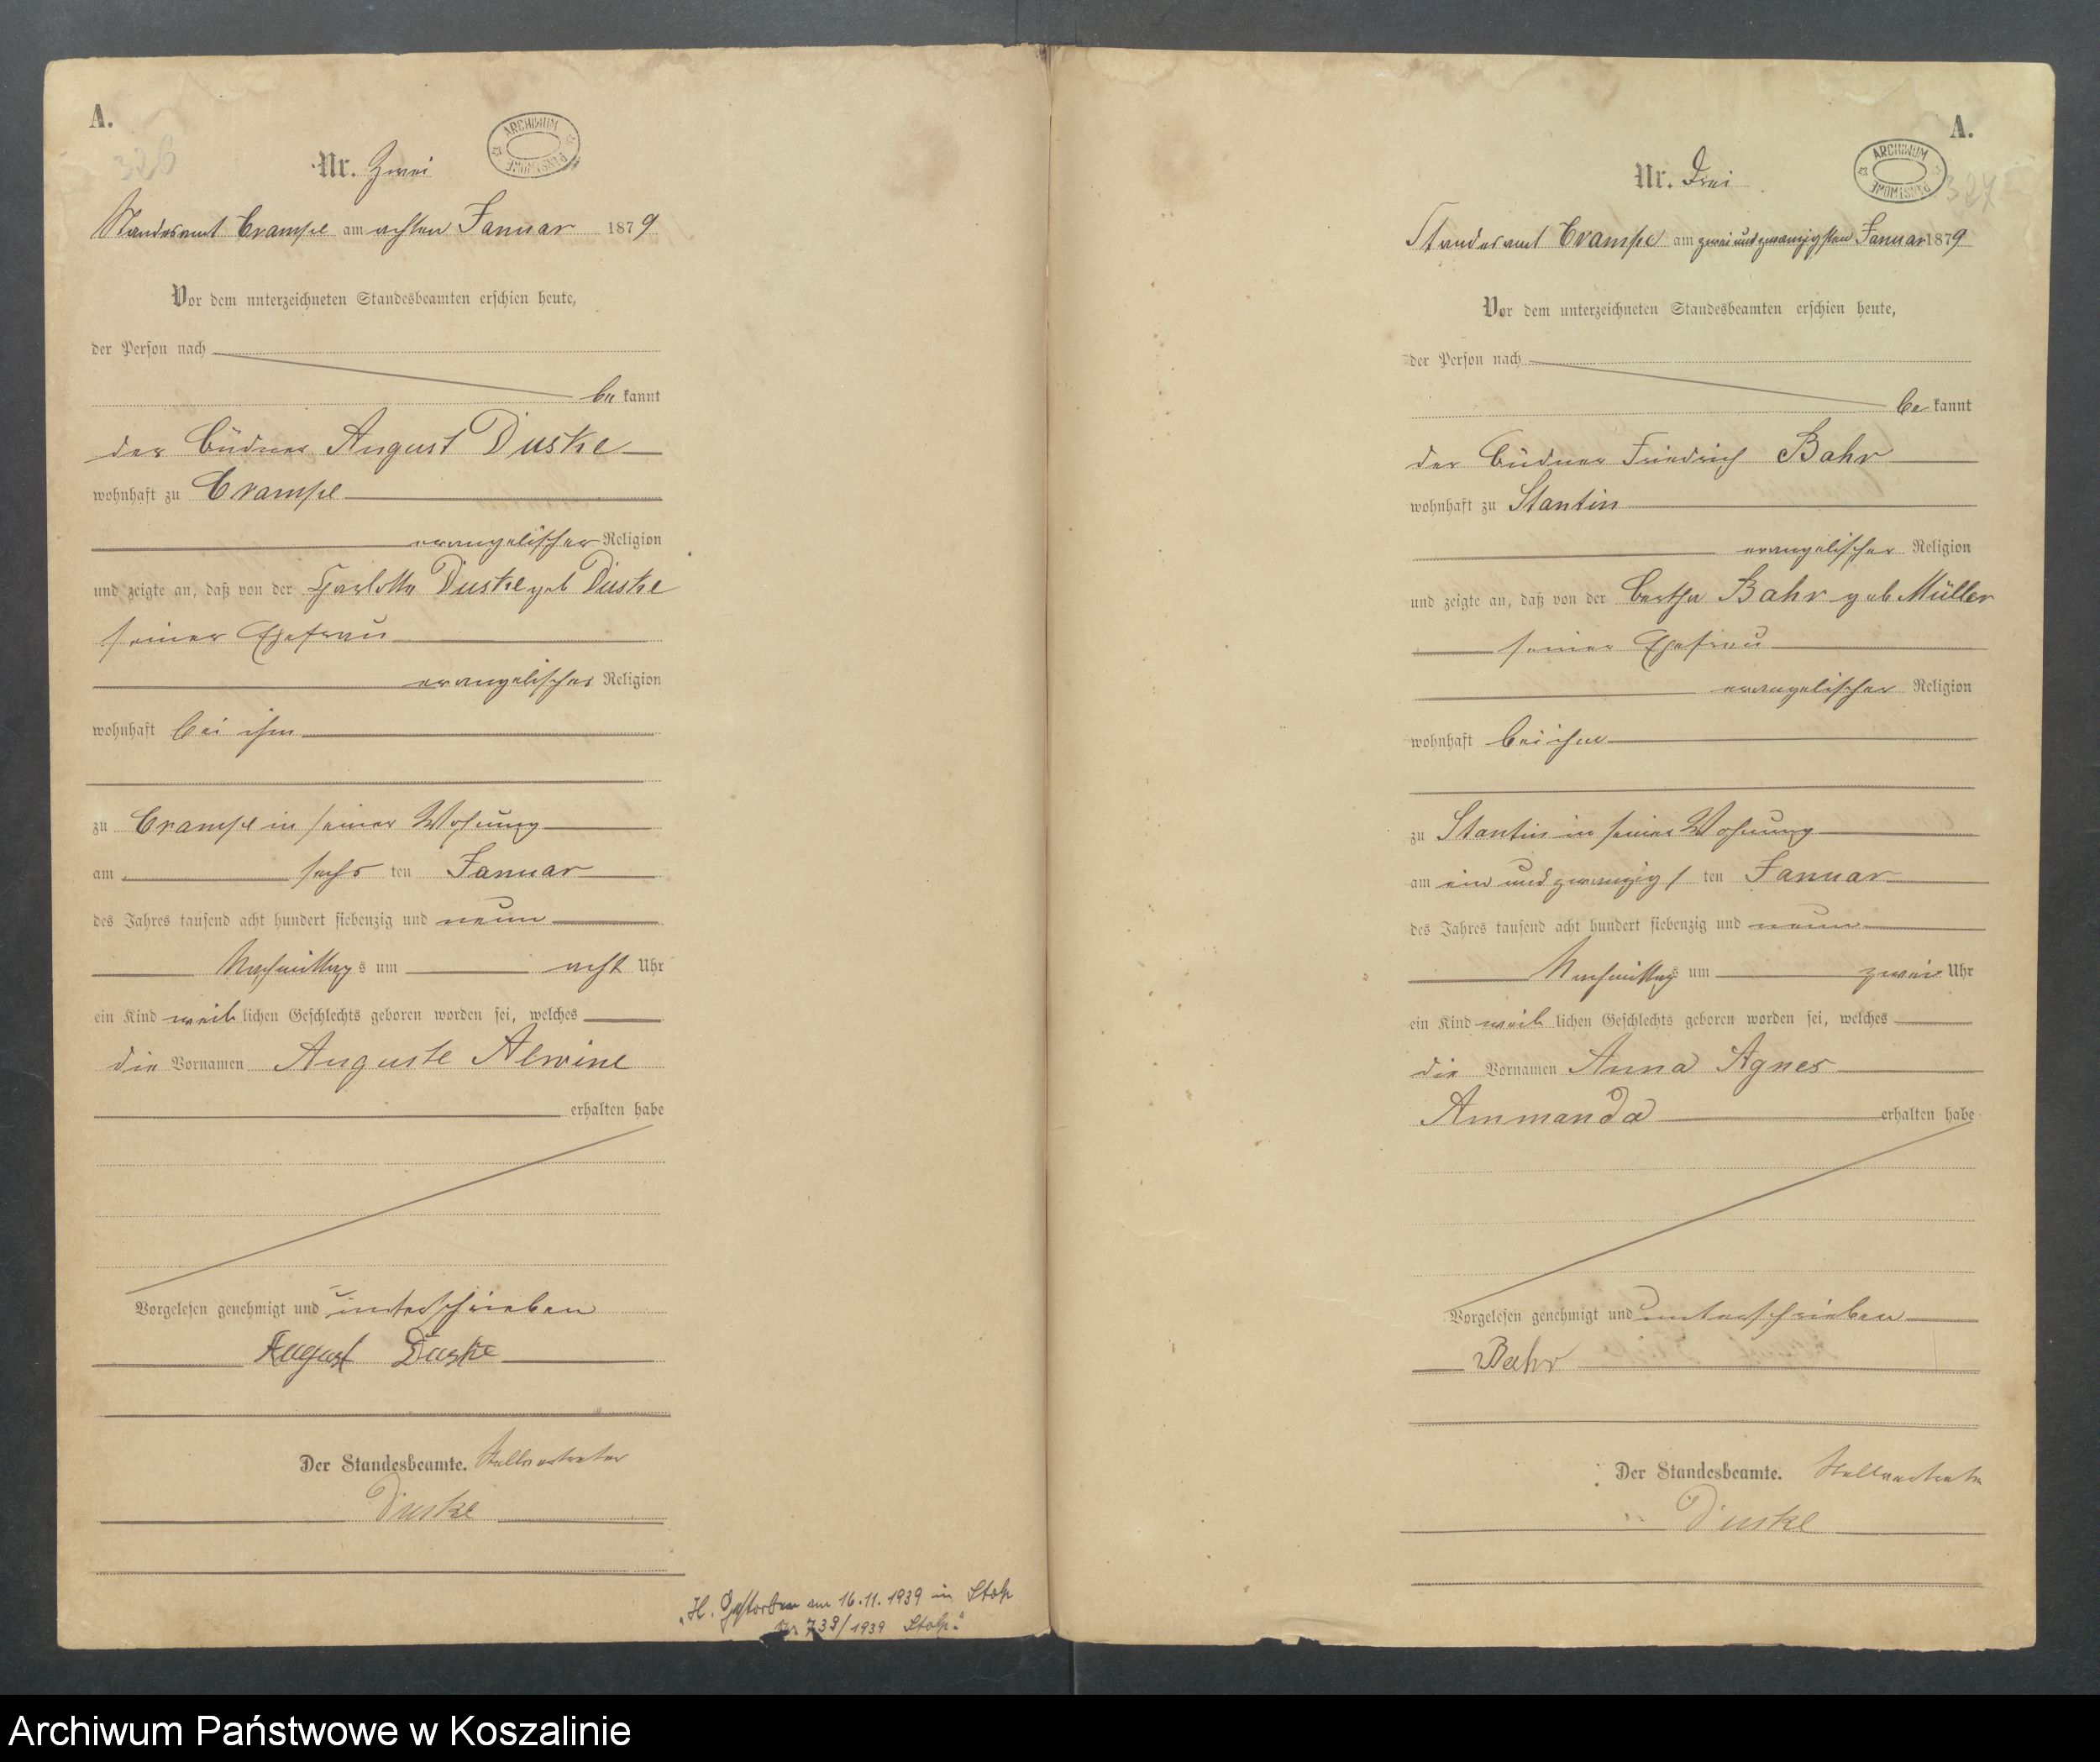 A.
326
ARCHIWUM PAŃSTWOWE
Nr. Zwei
Standesamt Crampe am achten Januar 1879
Vor dem unterzeichneten Standesbeamten erschien heute,
der Person nach
be kannt
der Büdner August Duske
wohnhaft zu Crampe
evangelischer Religion
und zeigte an, daß von der Charlotte Duske geb Duske
seiner Ehefrau
evangelischer Religion
wohnhaft bei ihm
zu Crampe in seiner Wohnung
am sechs ten Januar
des Jahres tausend acht hundert siebenzig und neun
Nachmittags um acht Uhr
ein Kind weib lichen Geschlechts geboren worden sei, welches
die Vornamen Auguste Alwine
erhalten habe
Vorgelesen genehmigt und unterschrieben
August Duske
Der Standesbeamte. Stellvertreter
Duske
„H. Gestorben am 16.11.1939 in Stolp
Nr 739/1939 Stolp."
A.
327
ARCHIWUM PAŃSTWOWE
Nr. Drei
Standesamt Crampe am zwei und zwanzigsten Januar 1879
Vor dem unterzeichneten Standesbeamten erschien heute,
der Person nach
be kannt
der Büdner Friedrich Bahr
wohnhaft zu Stantin
evangelischer Religion
und zeigte an, daß von der Bertha Bahr geb Müller
seiner Ehefrau
evangelischer Religion
wohnhaft bei ihm
zu Stantin in seiner Wohnung
am ein und zwanzigs ten Januar
des Jahres tausend acht hundert siebenzig und neun
Nachmittags um zwei Uhr
ein Kind weib lichen Geschlechts geboren worden sei, welches
die Vornamen Anna Agnes
Ammanda erhalten habe
Vorgelesen genehmigt und unterschrieben
Bahr
Der Standesbeamte. Stellvertreter
Duske
Archiwum Państwowe w Koszalinie